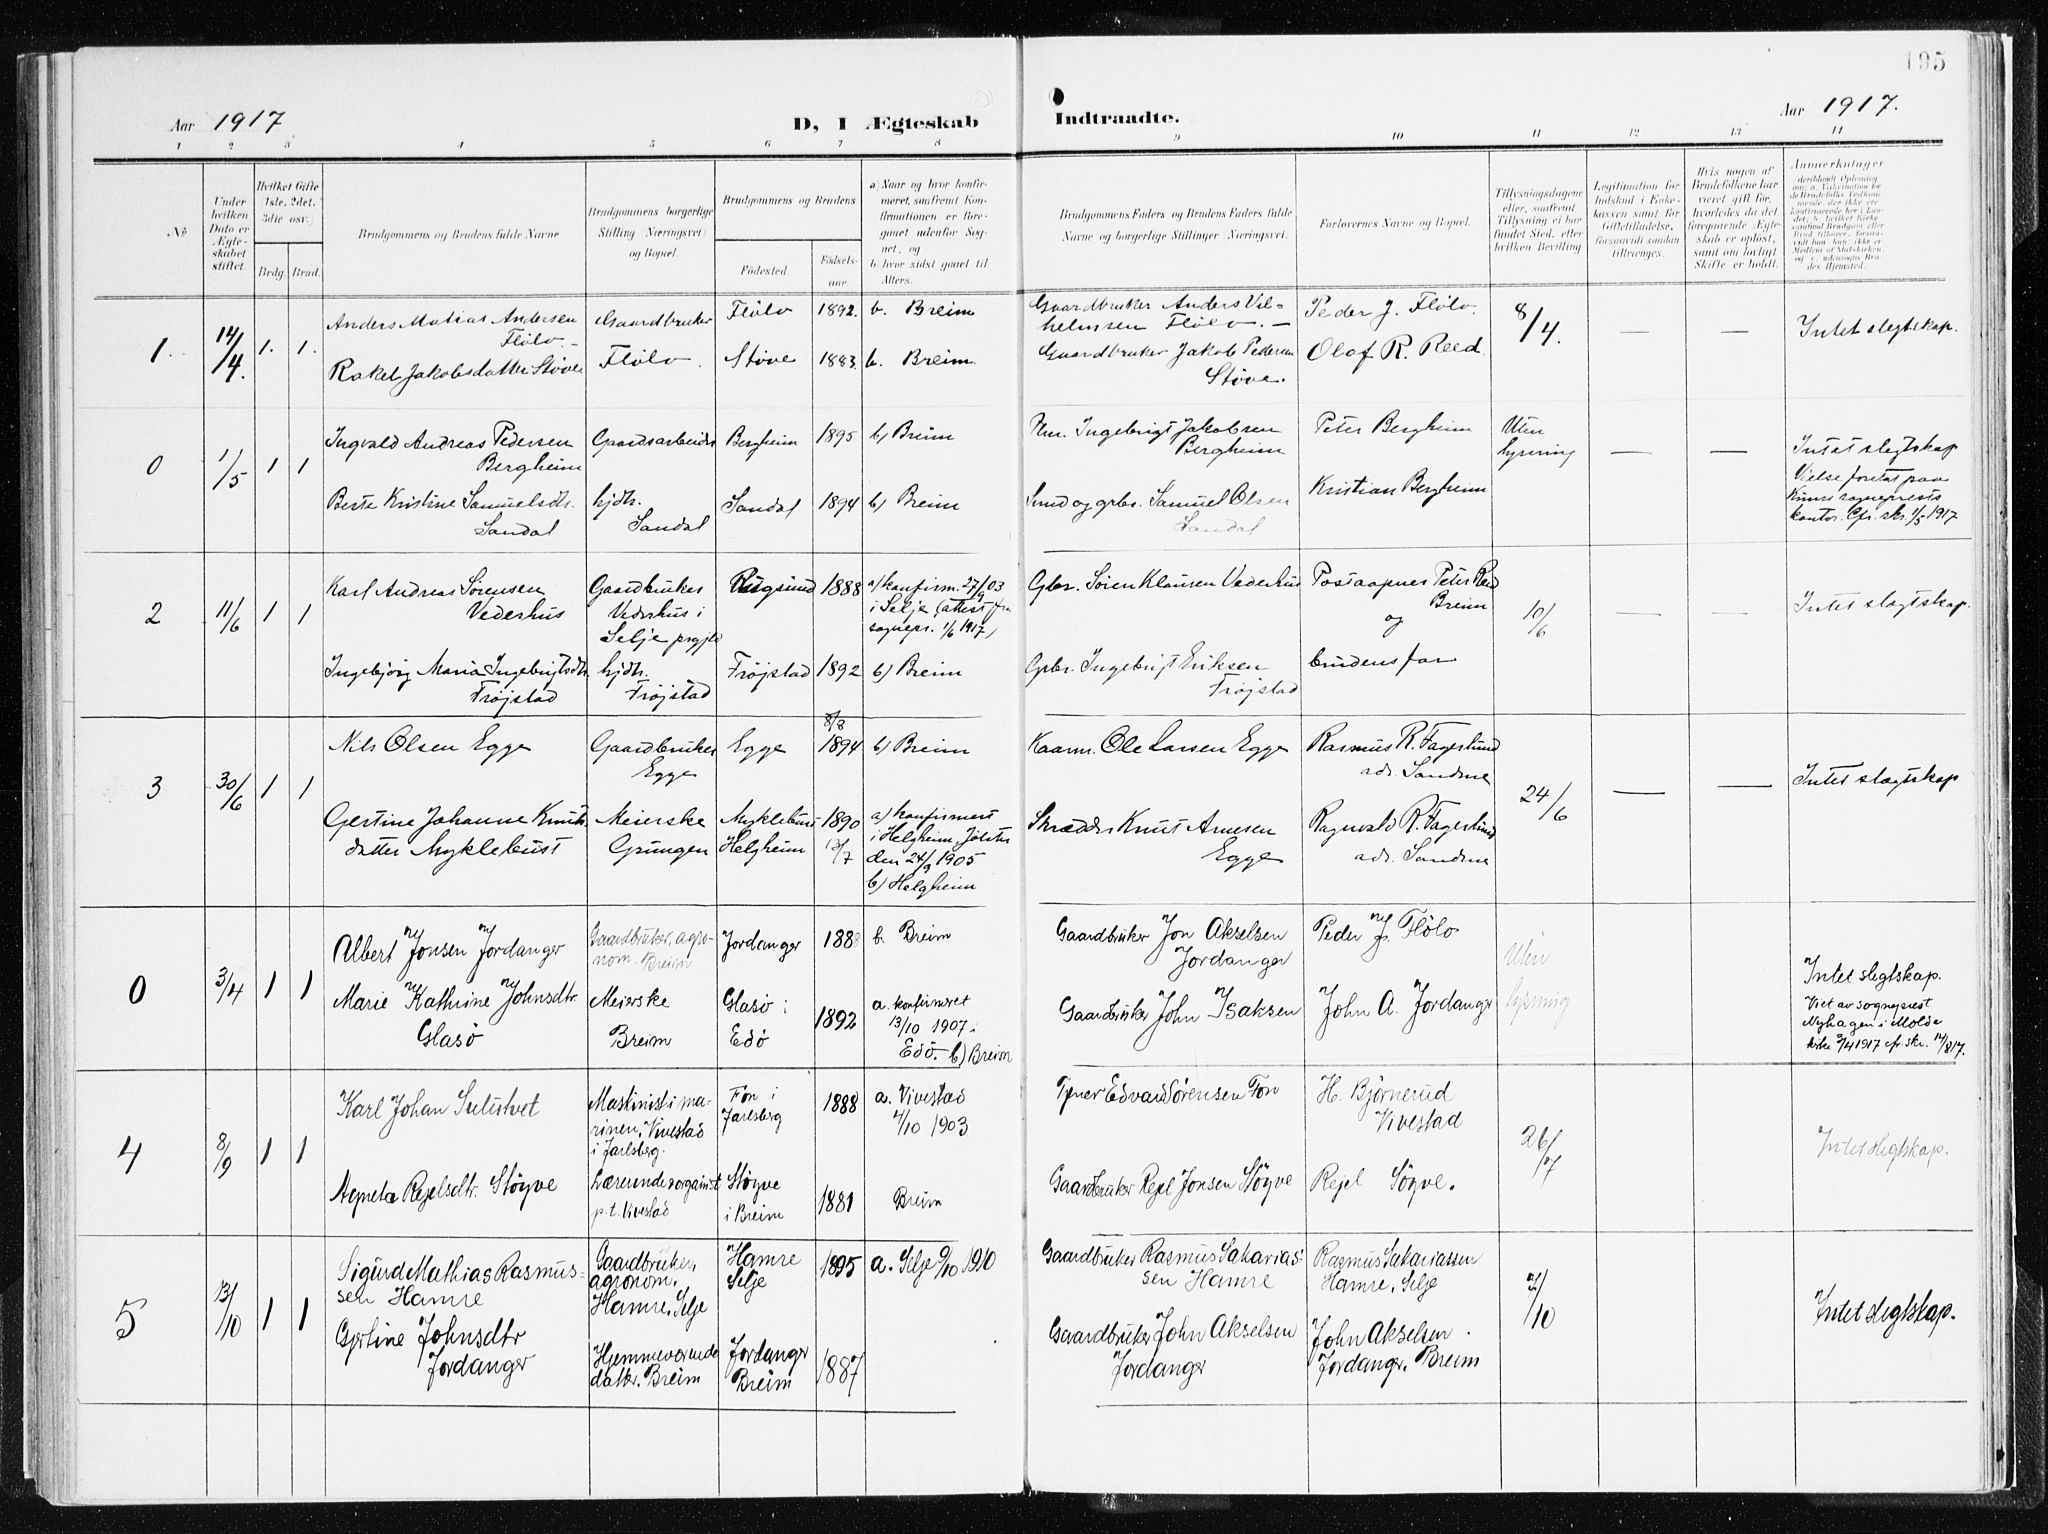 195
Aar 1917
D, I Ægteskab
Indtraadte.
Aar 1917.
1 2 3 4 5 6 7 8 9 10 11 12 13 14
No
Under hvilken Dato er Ægteskabet stiftet.
Hvilket Gifte (1ste, 2det, 3die osv.)
Brdg. Brud.
Brudgommens og Brudens fulde Navne
Brudgommens borgerlige Stilling (Næringsvei) og Bopæl.
Brudgommens og Brudens
Fødested.
Fødselsaar.
a) Naar og hvor konfirmeret, saafremt Konfirmationen er foregaaet udenfor Sognet, og
b) hvor sidst gaaet til Alters.
Brudgommens Faders og Brudens Faders fulde Navne og borgerlige Stillinger (Næringsvei).
Forlovernes Navne og Bopæl.
Tillysningsdagene eller, saafremt Tillysning ei har fundet Sted, efter hvilken Bevilling
Legitimation for Indskud i Enkekassen samt for Giftetilladelse, forsaavidt saadan tiltrænges.
Hvis nogen af Brudefolkene har været gift, hvorledes da det foregaaende Ægteskab er opløst, samt om lovligt Skifte er holdt.
Anmerkninger
1.
14/4.
1. 1.
Anders Matias Andersen
Flölo.
Rakel Jakobsdatter Støve
Gaardbruker
Flölo.
Flölo
Støve
1892.
1883.
b. Breim
b. Breim.
Gaardbruker Anders Vil-
helmsen Flölo. —
Gaardbruker Jakob Pedersen
Støve.
Peder J. Flölo.
Olof R. Reed.
8/4.
— —
Intet slegtskap.
0
1/5
1 1
Ingvald Andreas Pedersen
Bergheim
Berte Kristine Samuelsdtr.
Sandal
Gaardsarbeider
hjdtr.
Sandal
Bergheim
Sandal
1895
1894
b) Breim
b) Breim
Nm. Ingebrigt Jakobsen
Bergheim
Smed og grbr. Samuel Olsen
Sandal
Peter Bergheim
Kristian Bergheim
Uten
lysning
— —
Intet slegtskap
Vielse foretat paa
sogneprests
kontor. Cfr. skr. 1/5 1917
2
11/6
1 1
Karl Andreas Sørensen
Vederhus
Ingebjörg Maria Ingebrigtsdtr.
Fröjstad
Gaardbruker
Vederhus i
Selje prgjld
hjdtr.
Fröjstad
Rugsund
Fröjstad
1888
1892
a) konfirm. 27/9 03
i Selje (attest fra
sognepr. 1/6 1917)
b) Breim
Gbr. Søren Klausen Vederhus
Gbr. Ingebrigt Eriksen
Fröjstad
Postaapner Peter Reed
Breim
og
brudens far
10/6
— —
Intet slegtskap.
3
30/6
1 1
Nils Olsen Egge
Gertine Johanne Knuts-
datter Myklebust
Gaardbruker
Egge
Meierske
Grungen
Egge
Myklebust
Helgheim
8/8
1894
1890
13/7
b) Breim
a) konfirmert
i Helgheim, Jölster
den 24/9 1905
b) Helgheim
Kaarm. Ole Larsen Egge
Skrædder Knut Arnesen
Egge
Rasmus R. Fagerlund
adr. Sandene
Ragnvald R. Fagerlund
adr. Sandene
24/6
— —
Intet slegtskap
0
3/4
1 1
Albert Jonsen Jordanger
Marie Kathrine Johnsdtr.
Glasö
Gaardbruker, agro-
nom. Breim
Meierske
Breim
Jordanger
Glasö i
Edö
1888
1892
b. Breim
a. konfirmeret
13/10 1907 i
Edö. b) Breim
Gaardbruker Jon Akselsen
Jordanger
Gaardbruker John Isaksen
Peder J. Flölo
John A. Jordanger
Uten
lysning
Intet slegtskap.
Viet av sogneprest
Nyhagen i Molde
kirke 3/4 1917 cfr. skr. 14/8 17.
4
8/9
1 1
Karl Johan Sulutvet
Agneta Rejelsdtr. Stöyve
Maskinist i ma-
rinen, Vivestad
i Jarlsberg.
Lærerinde
p.t. Vivestad
Fon i
Jarlsberg
Stöyve
i Breim
1888
1881
a. Vivestad
4/10 1903
Breim
Edvard Sørensen Fon
Gaardbruker Rejel Jonsen Stöyve
H. Björnerud
Vivestad
Rejel Söyve.
26/7
Intet slegtskap.
5
13/10
1 1
Sigurd Mathias Rasmus-
sen Hamre
Gjertine Johnsdtr
Jordanger
Gaardbruker,
agronom.
Hamre, Selje
Hjemmeværende
datter. Breim
Hamre
Selje
Jordanger
Breim
1895
1887
a. Selje 9/10 1910
Gaardbruker Rasmus Sakarias-
sen Hamre
Gaardbruker John Akselsen
Jordanger
Rasmus Sakariassen
Hamre, Selje
John Akselsen
Jordanger. Breim
7/10
Intet slegtskap.